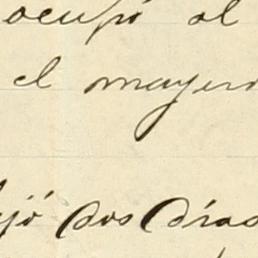 ocupó al
el mayer
jó dos días